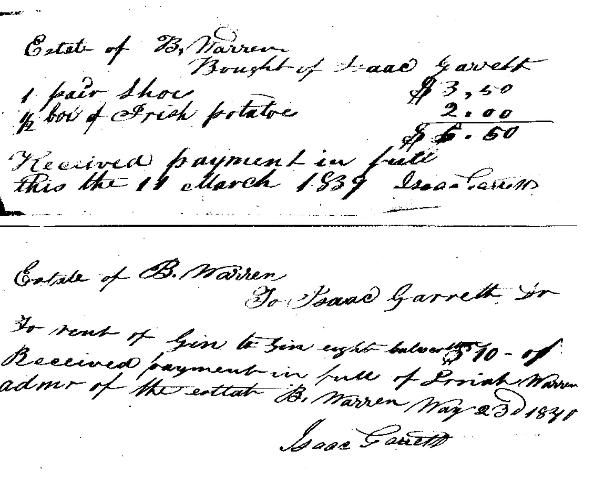 Estate of B. Warren
Bought of Isaac Garrett
1 pair Shoes $3,50
1/2 box of Irish potatoes 2.00
$ 5.50
Received payment in full
this the 11 March 1839 Isaac Garrett
Estate of B. Warren
To Isaac Garrett Dr
To rent of Gin to Gin eight bales $10-
Received payment in full of Warren
admr of the estate B. Warren May 23d
Isaac Garrett